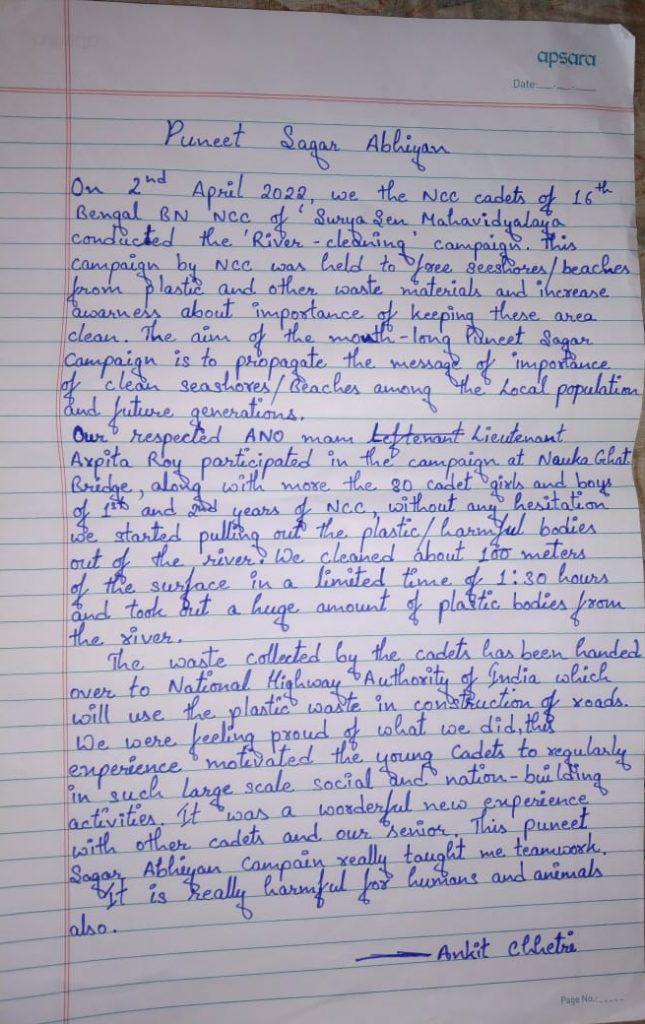 apsara
Date:
Puneet Sagar Abhiyan
On 2nd April 2022, we the NCC cadets of 16th
Bengal BN NCC of 'Surya Sen Mahavidyalaya
conducted the 'River-cleaning' campaign. This
campaign by NCC was held to free seeshores/beaches
from plastic and other waste materials and increase
awarness about importance of keeping these area
clean. The aim of the month-long Puneet Sagar
Campaign is to propagate the message of importance
of clean seashores/Beaches among the Local population
and future generations.
Our respected ANO mam Leftenant Lieutenant
Arpita Roy participated in the campaign at Nauka Ghat
Bridge, along with more the 30 cadet girls and boys
of 1st and 2nd years of NCC, without any hesitation
we started pulling out the plastic/harmful bodies
out of the river. We cleaned about 100 meters
of the surface in a limited time of 1:30 hours
and took out a huge amount of plastic bodies from
the river.
The waste collected by the cadets has been handed
over to National Highway Authority of India which
will use the plastic waste in construction of roads.
We were feeling proud of what we did, this
experience motivated the young Cadets to regularly
in such large scale social and nation-building
activities. It was a wonderful new experience
with other cadets and our senior. This puneet
Sagar Abhiyan Campain really taught me teamwork.
It is really harmful for humans and animals
also.
— Ankit Chhetri
Page No.: